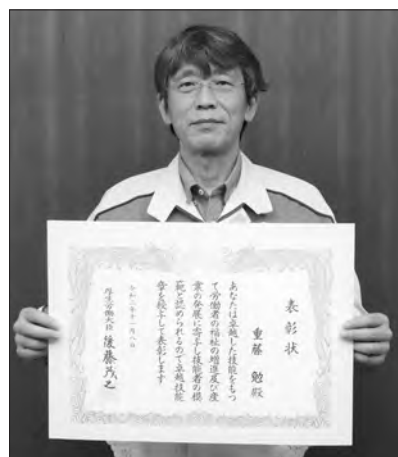 表彰状
重藤 勉 殿
あなたは卓越した技能をもつ
て労働者の福祉の増進及び産
業の発展に寄与し技能者の模
範と認められるので卓越技能
章を授与して表彰します
令和三年十一月八日
厚生労働大臣 後藤茂之